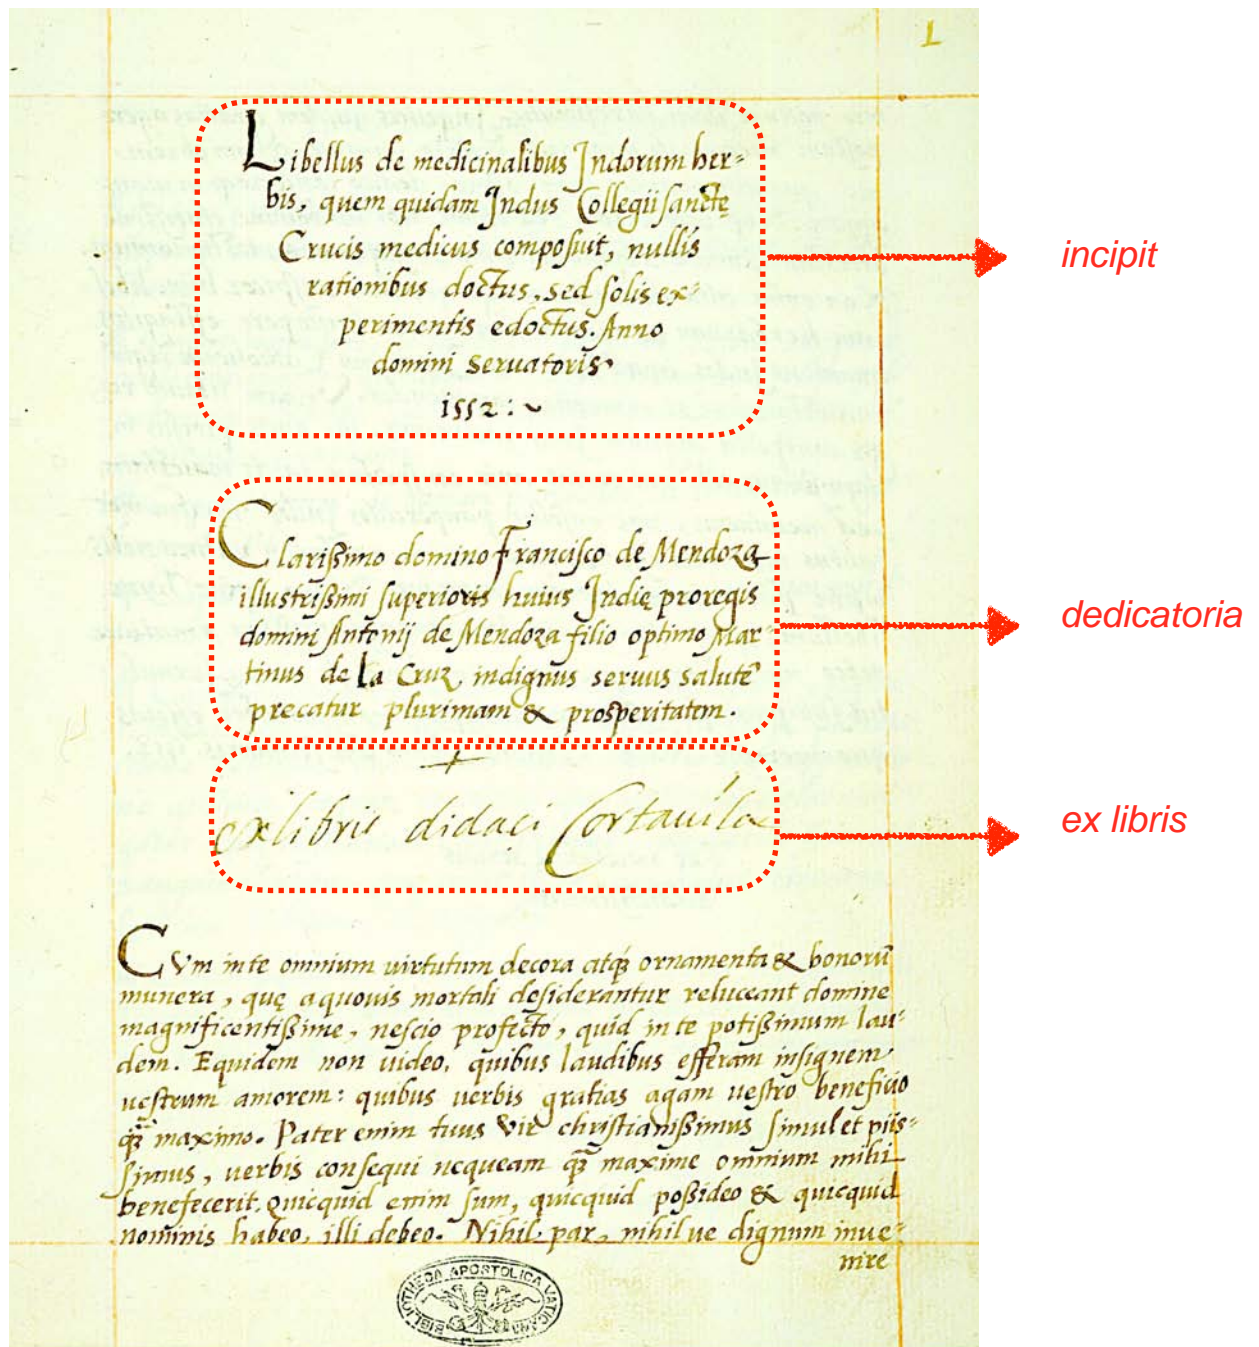 1
Libellus de medicinalibus Indorum her=
bis, quem quidam Indus Collegii sanctę
Crucis medicus composuit, nullis
rationibus doctus, sed solis ex=
perimentis edoctus. Anno
domini servatoris.
1552:~
incipit
Clarißimo domino Francisco de Mendoza
illustrißimi superioris huius Indię proregis
domini Antonij de Mendoza filio optimo Mar=
tinus de la Cruz indignus seruus salutē
precatur plurimam & prosperitatem.
dedicatoria
+
ex libris didaci Cortauila
ex libris
CVm in te omnium uirtutum decora atq; ornamenta & bonorū
munera, quę a quouis mortali desiderantur reluceant domine
magnificentißime, nescio profecto, quid in te potißimum lau=
dem. Equidem non uideo, quibus laudibus efferam insignem
uestrum amorem: quibus uerbis gratias agam uestro beneficio
q̃ maximo. Pater enim tuus vir christianißimus simul et piis=
simus, uerbis consequi nequeam q̃ maxime omnium mihi
benefecerit. Quicquid enim sum, quicquid poßideo & quicquid
nominis habeo, illi debeo. Nihil par, nihilue dignum inue=
nire
BIBLIOTHECA APOSTOLICA VATICANA